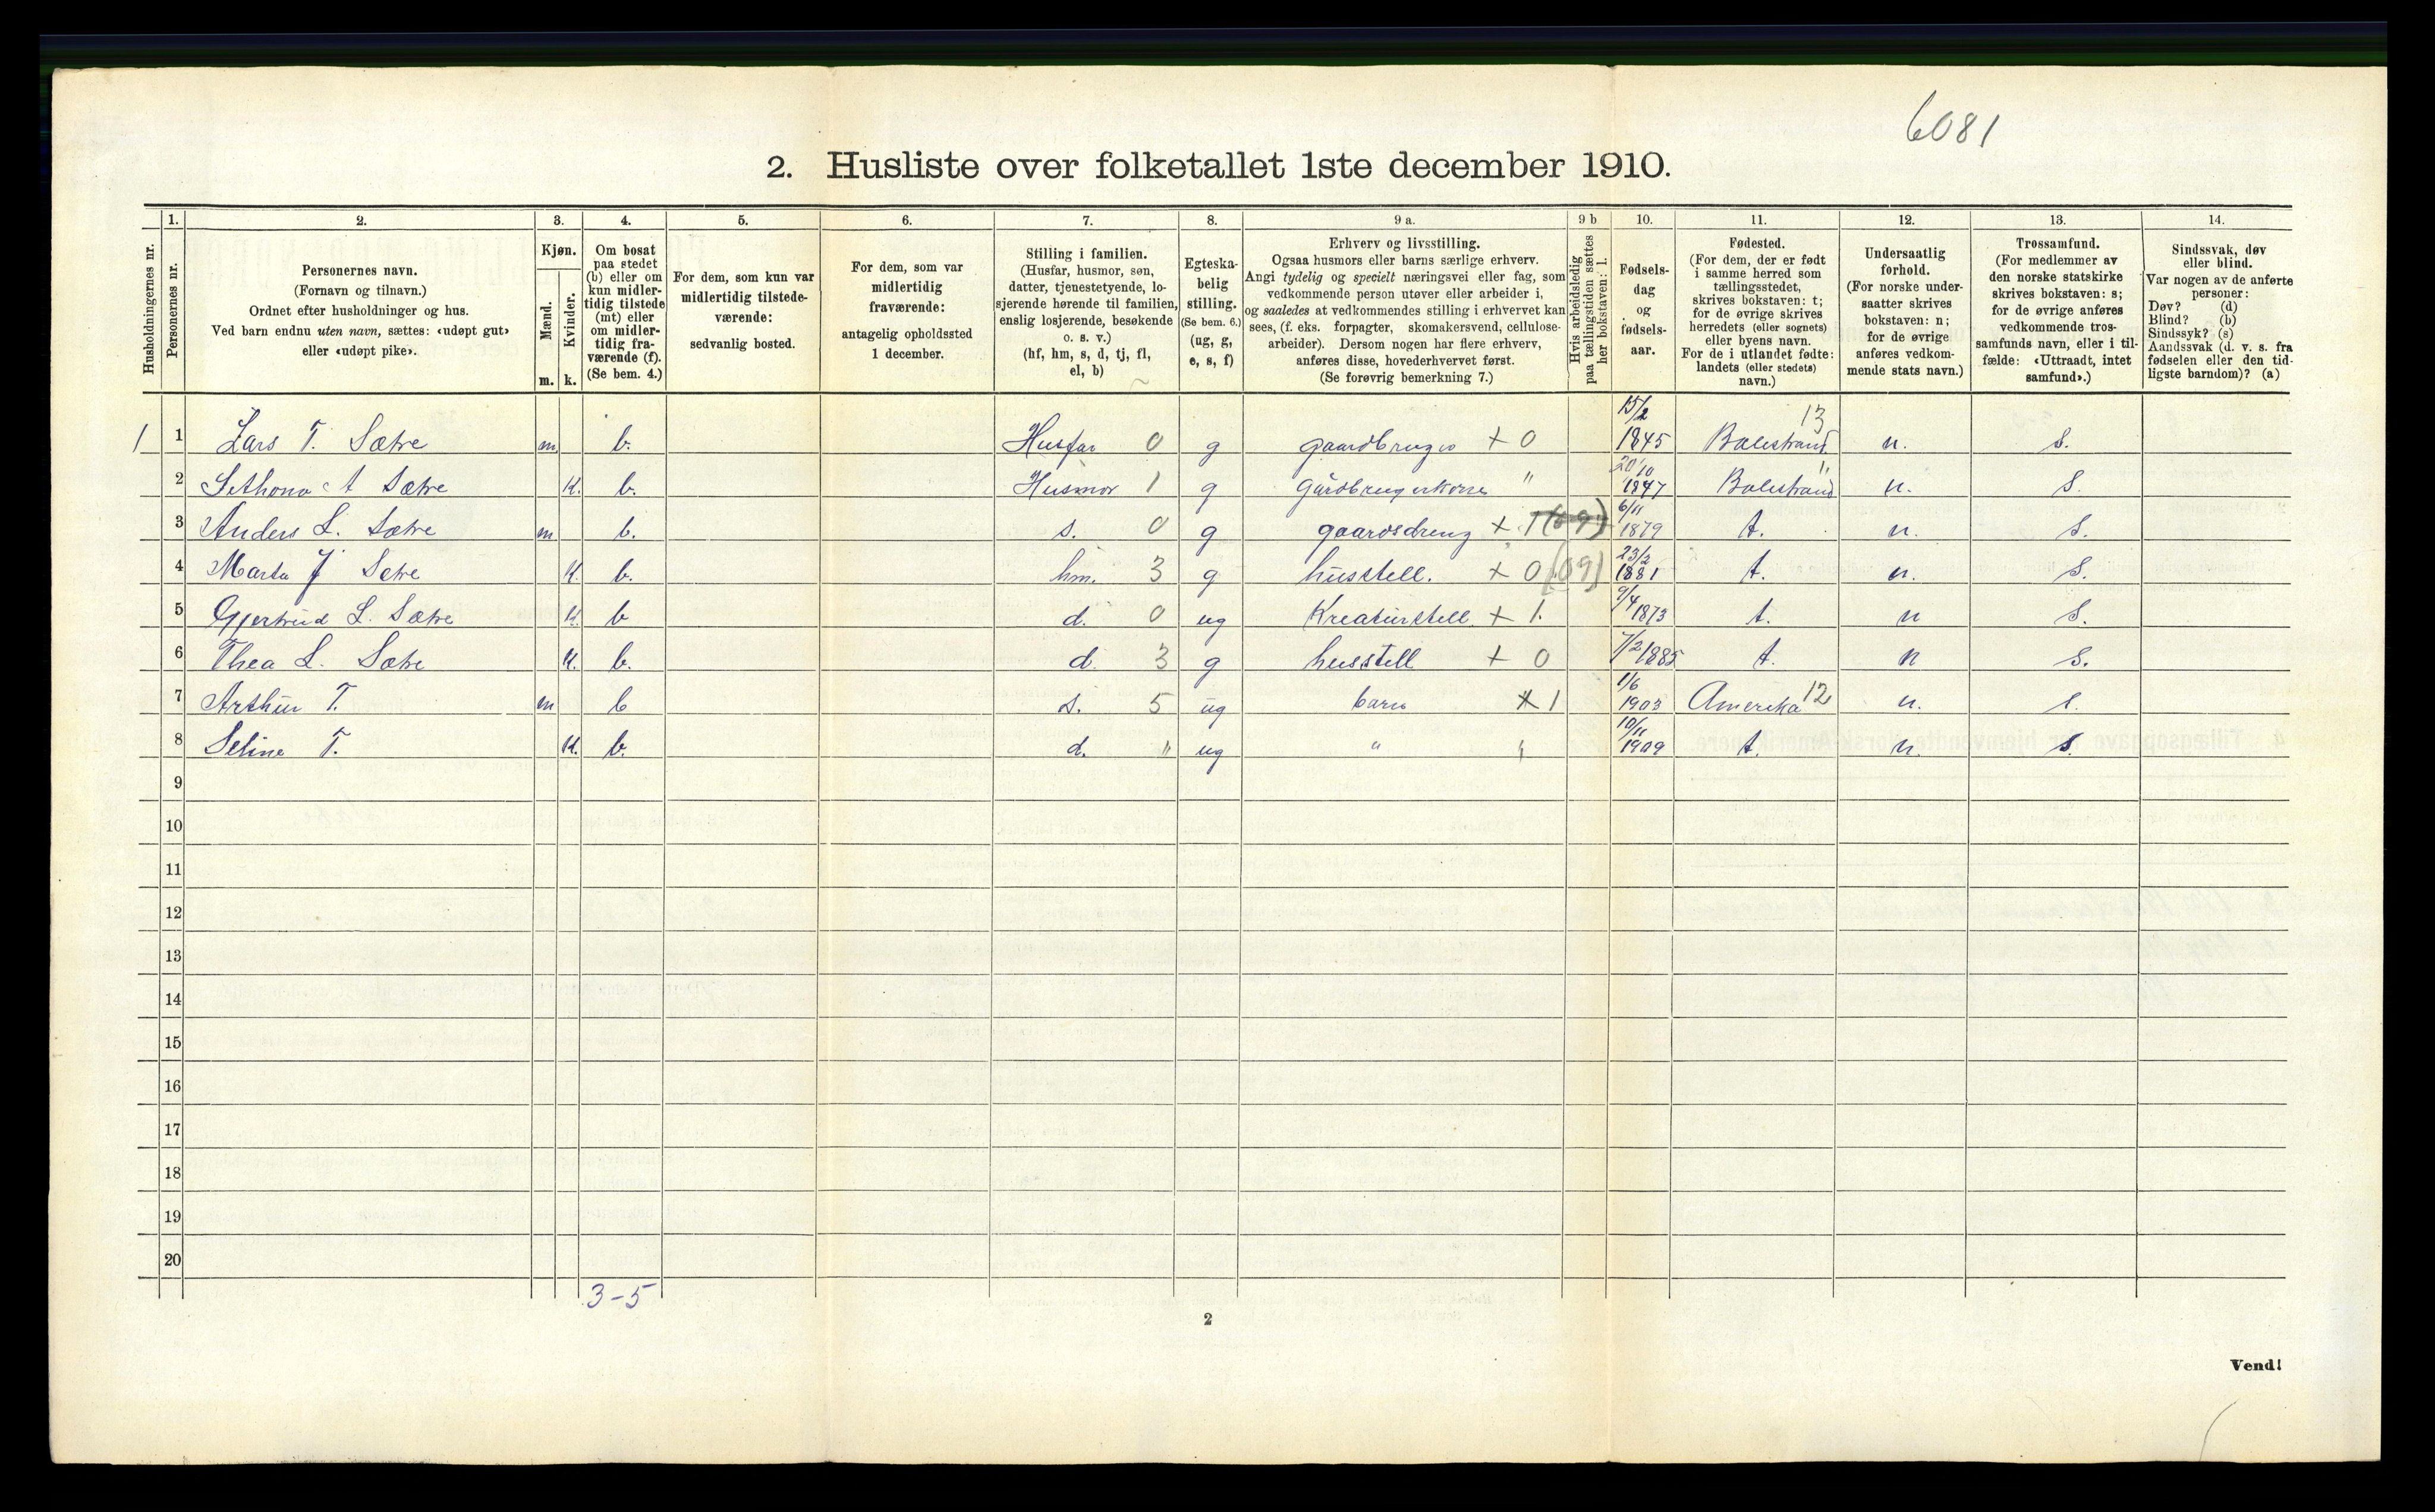 6081
2. Husliste over folketallet 1ste december 1910.
Husholdningernes nr.
1.
Personernes nr.
2.
Personernes navn.
(Fornavn og tilnavn.)
Ordnet efter husholdninger og hus.
Ved barn endnu uten navn, sættes: «udøpt gut»
eller «udøpt pike».
3.
Kjøn.
Mænd.
Kvinder.
m. k.
4.
Om bosat
paa stedet
(b) eller om
kun midler-
tidig tilstede
(mt) eller
om midler-
tidig fra-
værende (f).
(Se bem. 4.)
5.
For dem, som kun var
midlertidig tilstede-
værende:
sedvanlig bosted.
6.
For dem, som var
midlertidig
fraværende:
antagelig opholdssted
1 december.
7.
Stilling i familien.
(Husfar, husmor, søn,
datter, tjenestetyende, lo-
sjerende hørende til familien,
enslig losjerende, besøkende
o. s. v.)
(hf, hm, s, d, tj, fl,
el, b)
8.
Egteska-
belig
stilling.
(Se bem. 6.)
(ug, g,
e, s, f)
9 a.
Erhverv og livsstilling.
Ogsaa husmors eller barns særlige erhverv.
Angi tydelig og specielt næringsvei eller fag, som
vedkommende person utøver eller arbeider i,
og saaledes at vedkommendes stilling i erhvervet kan
sees, (f. eks. forpagter, skomakersvend, cellulose-
arbeider). Dersom nogen har flere erhverv,
anføres disse, hovederhvervet først.
(Se forøvrig bemerkning 7.)
9 b
Hvis arbeidsledig
paa tællingstiden sættes
her bokstaven: l.
10.
Fødsels-
dag
og
fødsels-
aar.
11.
Fødested.
(For dem, der er født
i samme herred som
tællingsstedet,
skrives bokstaven: t;
for de øvrige skrives
herredets (eller sognets)
eller byens navn.
For de i utlandet fødte:
landets (eller stedets)
navn.)
12.
Undersaatlig
forhold.
(For norske under-
saatter skrives
bokstaven: n;
for de øvrige
anføres vedkom-
mende stats navn.)
13.
Trossamfund.
(For medlemmer av
den norske statskirke
skrives bokstaven: s;
for de øvrige anføres
vedkommende tros-
samfunds navn, eller i til-
fælde: «Uttraadt, intet
samfund».)
14.
Sindssvak, døv
eller blind.
Var nogen av de anførte
personer:
Døv? (d)
Blind? (b)
Sindssyk? (s)
Aandssvak (d. v. s. fra
fødselen eller den tid-
ligste barndom)? (a)
1 1 Lars T. Sætre m b. Husfar 0 g gaardbruger + 0 15/2 1845 Balestrand 13 n. s.
2 A Sætre K. b. Husmor 1 g " 20/10 1847 Balestrand " n. s.
3 Anders L. Sætre m b. s. 0 g gaardsdreng + 1 (09) 6/11 1879 t. n. s.
4 Marta J Setre K. b. hm. 3 g husstell. + 0 (09) 23/2 1881 t. n. s.
5 Gjertrud L. Sætre K. b d. 0 ug Kreaturstell + 1. 9/4 1873 t. n s.
6 Thea L. Sætre K. b. d. 3 g husstell + 0 7/2 1885 t. n s.
7 Arthur T. m b s. 5 ug barn + 1 1/6 1903 Amerika 12 n. s.
8 Seline T. K. b. d. " ug " " 10/11 1909 t. n. s.
9
10
11
12
13
14
15
16
17
18
19
20
3-5
2
Vend!